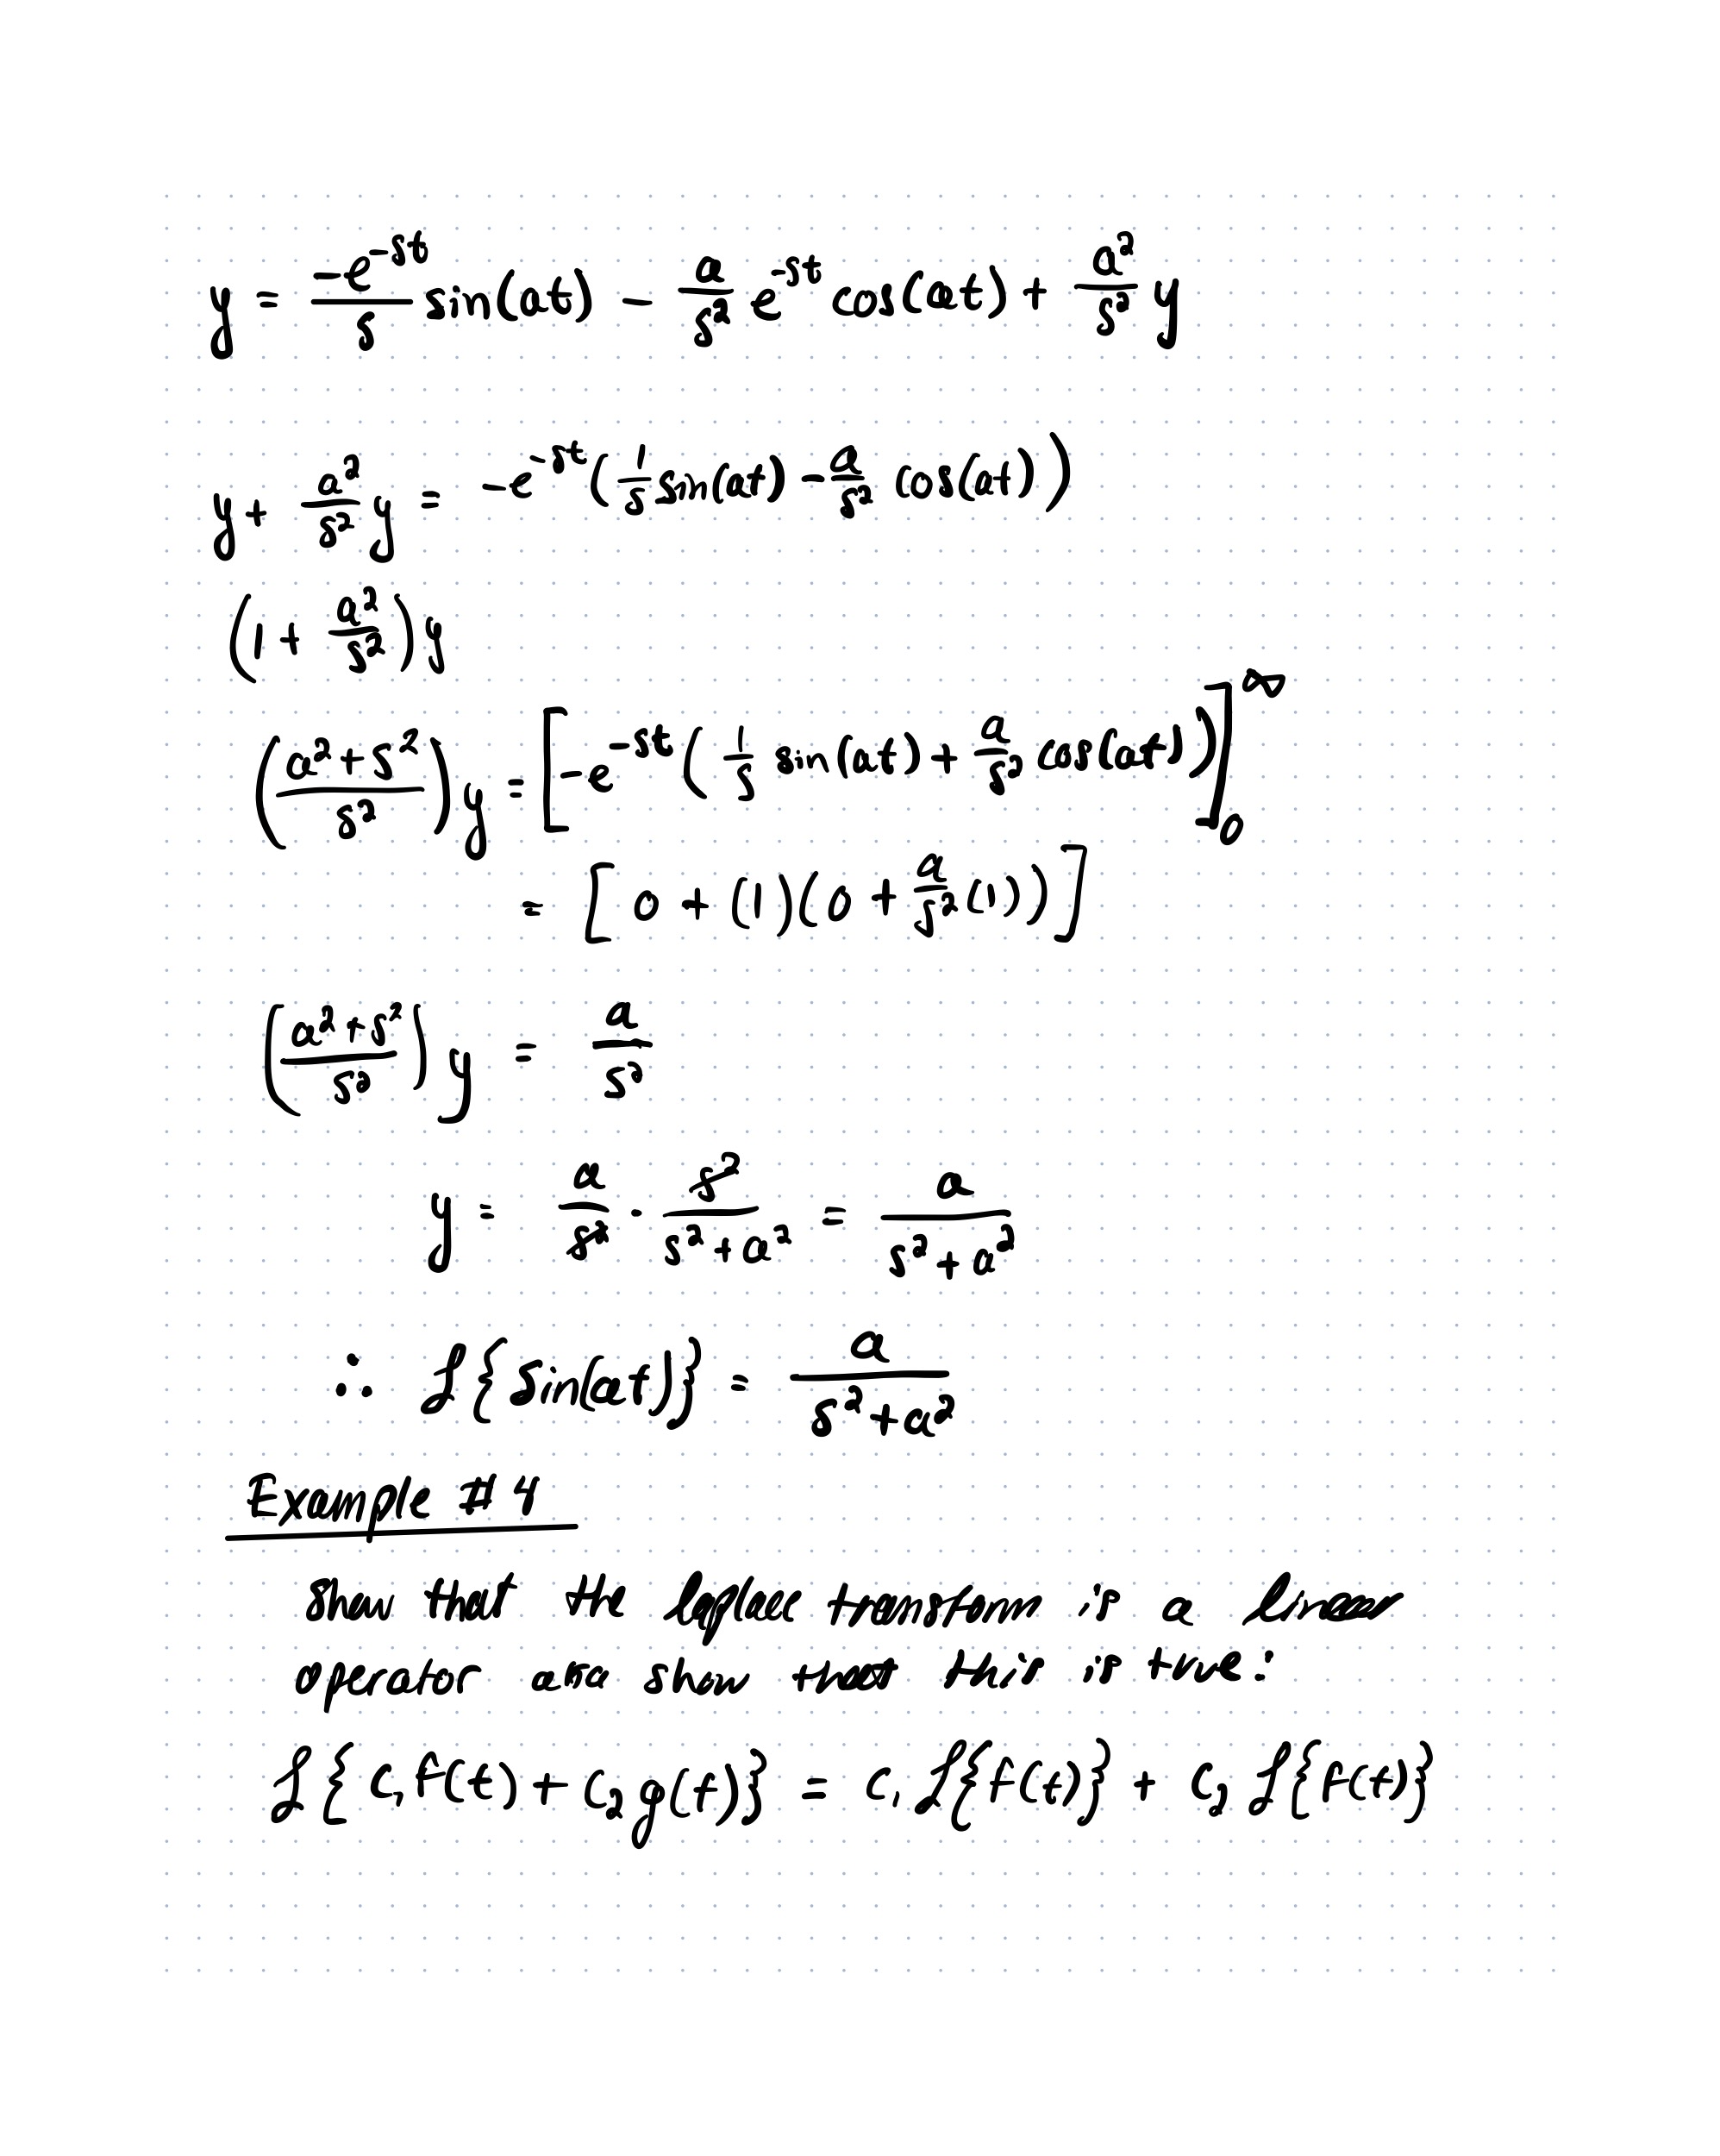 y = -e^{-st}/s sin(at) - a/s² e^{-st} cos(at) + a²/s² y
y + a²/s² y = -e^{-st}(1/s sin(at) - a/s² cos(at))
(1 + a²/s²)y
((a²+s²)/s²)y = [-e^{-st}(1/s sin(at) + a/s² cos(at))]₀^∞
= [0 + (1)(0 + a/s²(1))]
((a²+s²)/s²)y = a/s²
y = a/s² · s²/(s²+a²) = a/(s²+a²)
∴ ℒ{sin(at)} = a/(s²+a²)
Example #4
show that the laplace transform is a linear
operator aka show that this is true:
ℒ{c₁f(t) + c₂g(t)} = c₁ℒ{f(t)} + c₂ℒ{f(t)}